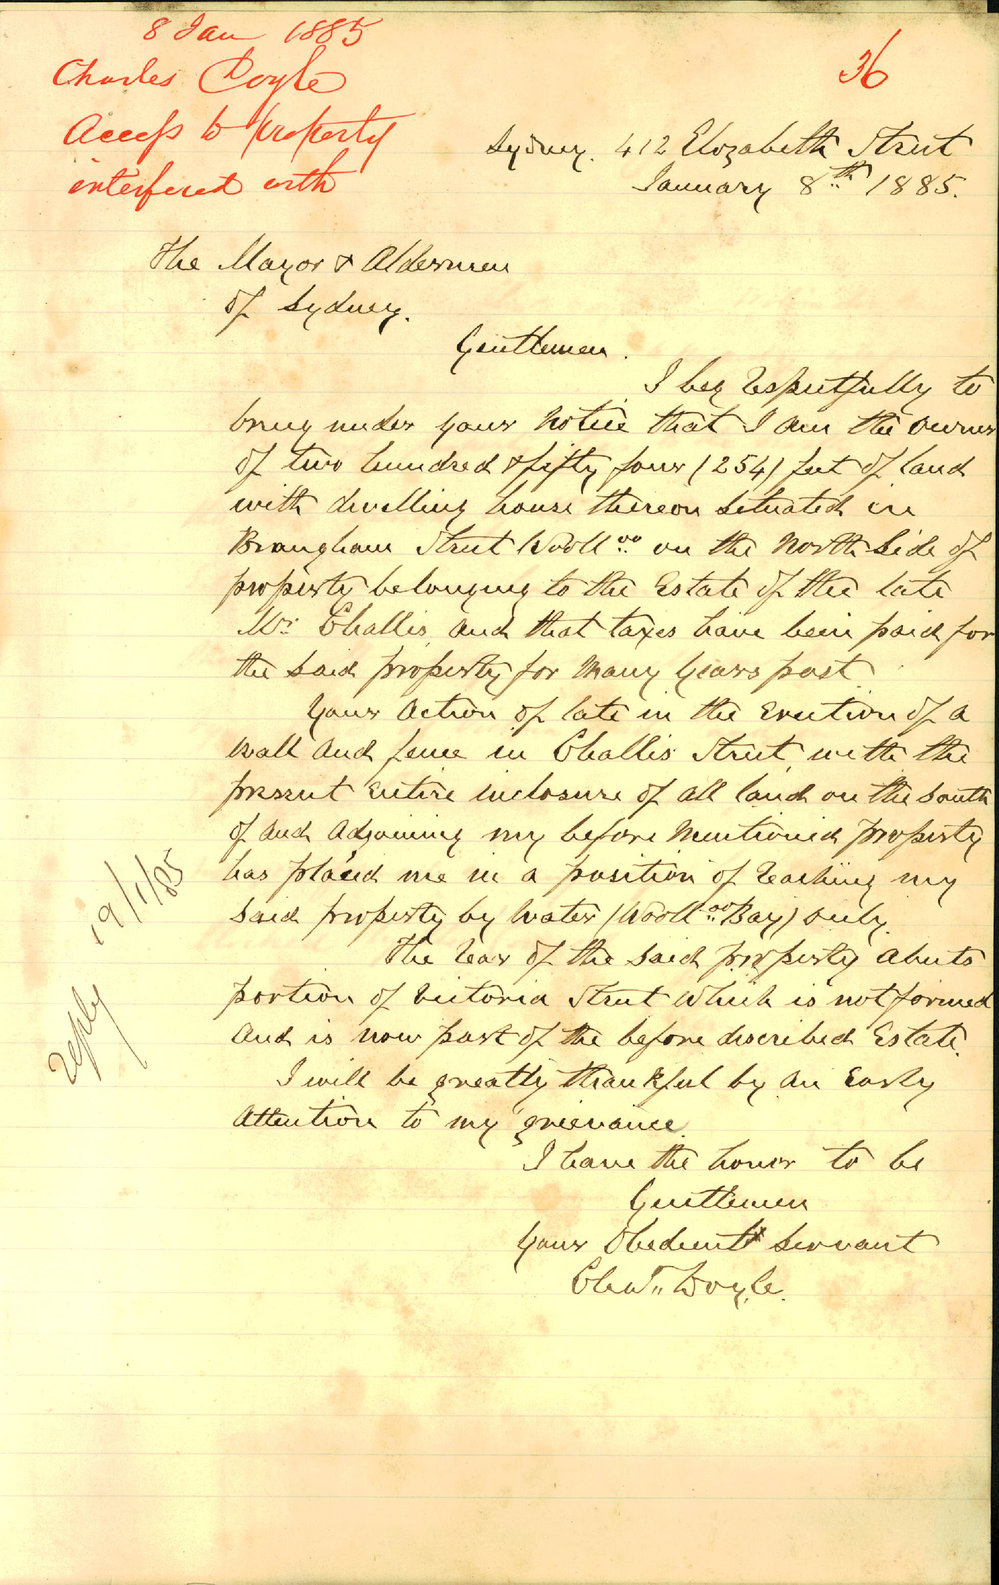 8 Jan 1885
Charles Doyle
Access to property
interfered with
36
Sydney. 412 Elizabeth Street
January 8th 1885.
The Mayor & Aldermen
of Sydney.
Gentlemen.
I beg respectfully to
bring under your notice that I am the owner
of two hundred & fifty four (254) feet of land
with dwelling house thereon situated in
Brougham Street Woolloo on the North Side of
property belonging to the Estate of the late
Mr Challis, and that taxes have been paid for
the said property for many years past
Your action of late in the erection of a
wall and fence in Challis Street, with the
present entire inclosure of all land on the South
of and adjoining my before mentioned property
has placed me in a position of reaching my
said property by water (Woolloo Bay) only.
The rear of the said property abuts
portion of Victoria Street which is not formed
and is now part of the before discribed Estate.
I will be greatly thankful by an early
attention to my grievance.
I have the honor to be
Gentlemen
Your Obedient Servant
Chas Doyle.
reply 19/1/85